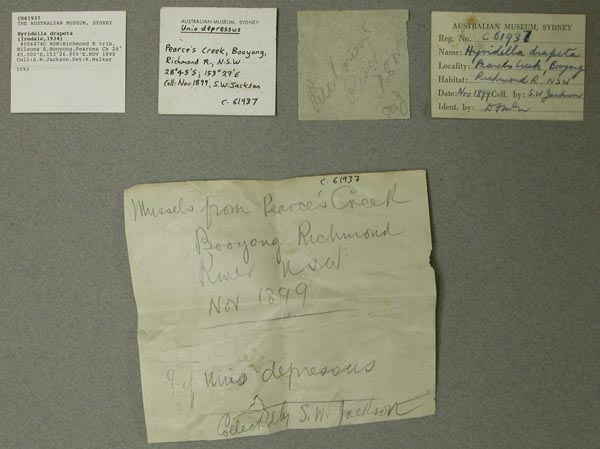 C061937
THE AUSTRALIAN MUSEUM, SYDNEY
Hyridella drapeta
(Iredale,1934)
#006474C NSW:Richmond R trib,
Wilsons R,Booyong,Pearces Ck 28°
45.000'S,153°26.900'E.NOV 1899
Coll:S.W.Jackson.Det:K.Walker
1993
AUSTRALIAN MUSEUM, SYDNEY
Unio depressus
Pearce's Creek, Booyong,
Richmond R., N.S.W
28°45'S; 153°27'E
Coll: Nov 1899, S.W. Jackson
C. 61937
AUSTRALIAN MUSEUM, SYDNEY
Reg. No. C61937
Name: Hyridella drapeta
Locality: Pearce's Creek, Booyong
Habitat: Richmond R. NSW
Date: Nov 1899 Coll. by: S.W Jackson
Ident. by:
C. 61937
Mussels from Pearce's Creek
Booyong Richmond
River NSW
Nov 1899
Unio depressus
Collected by S.W. Jackson